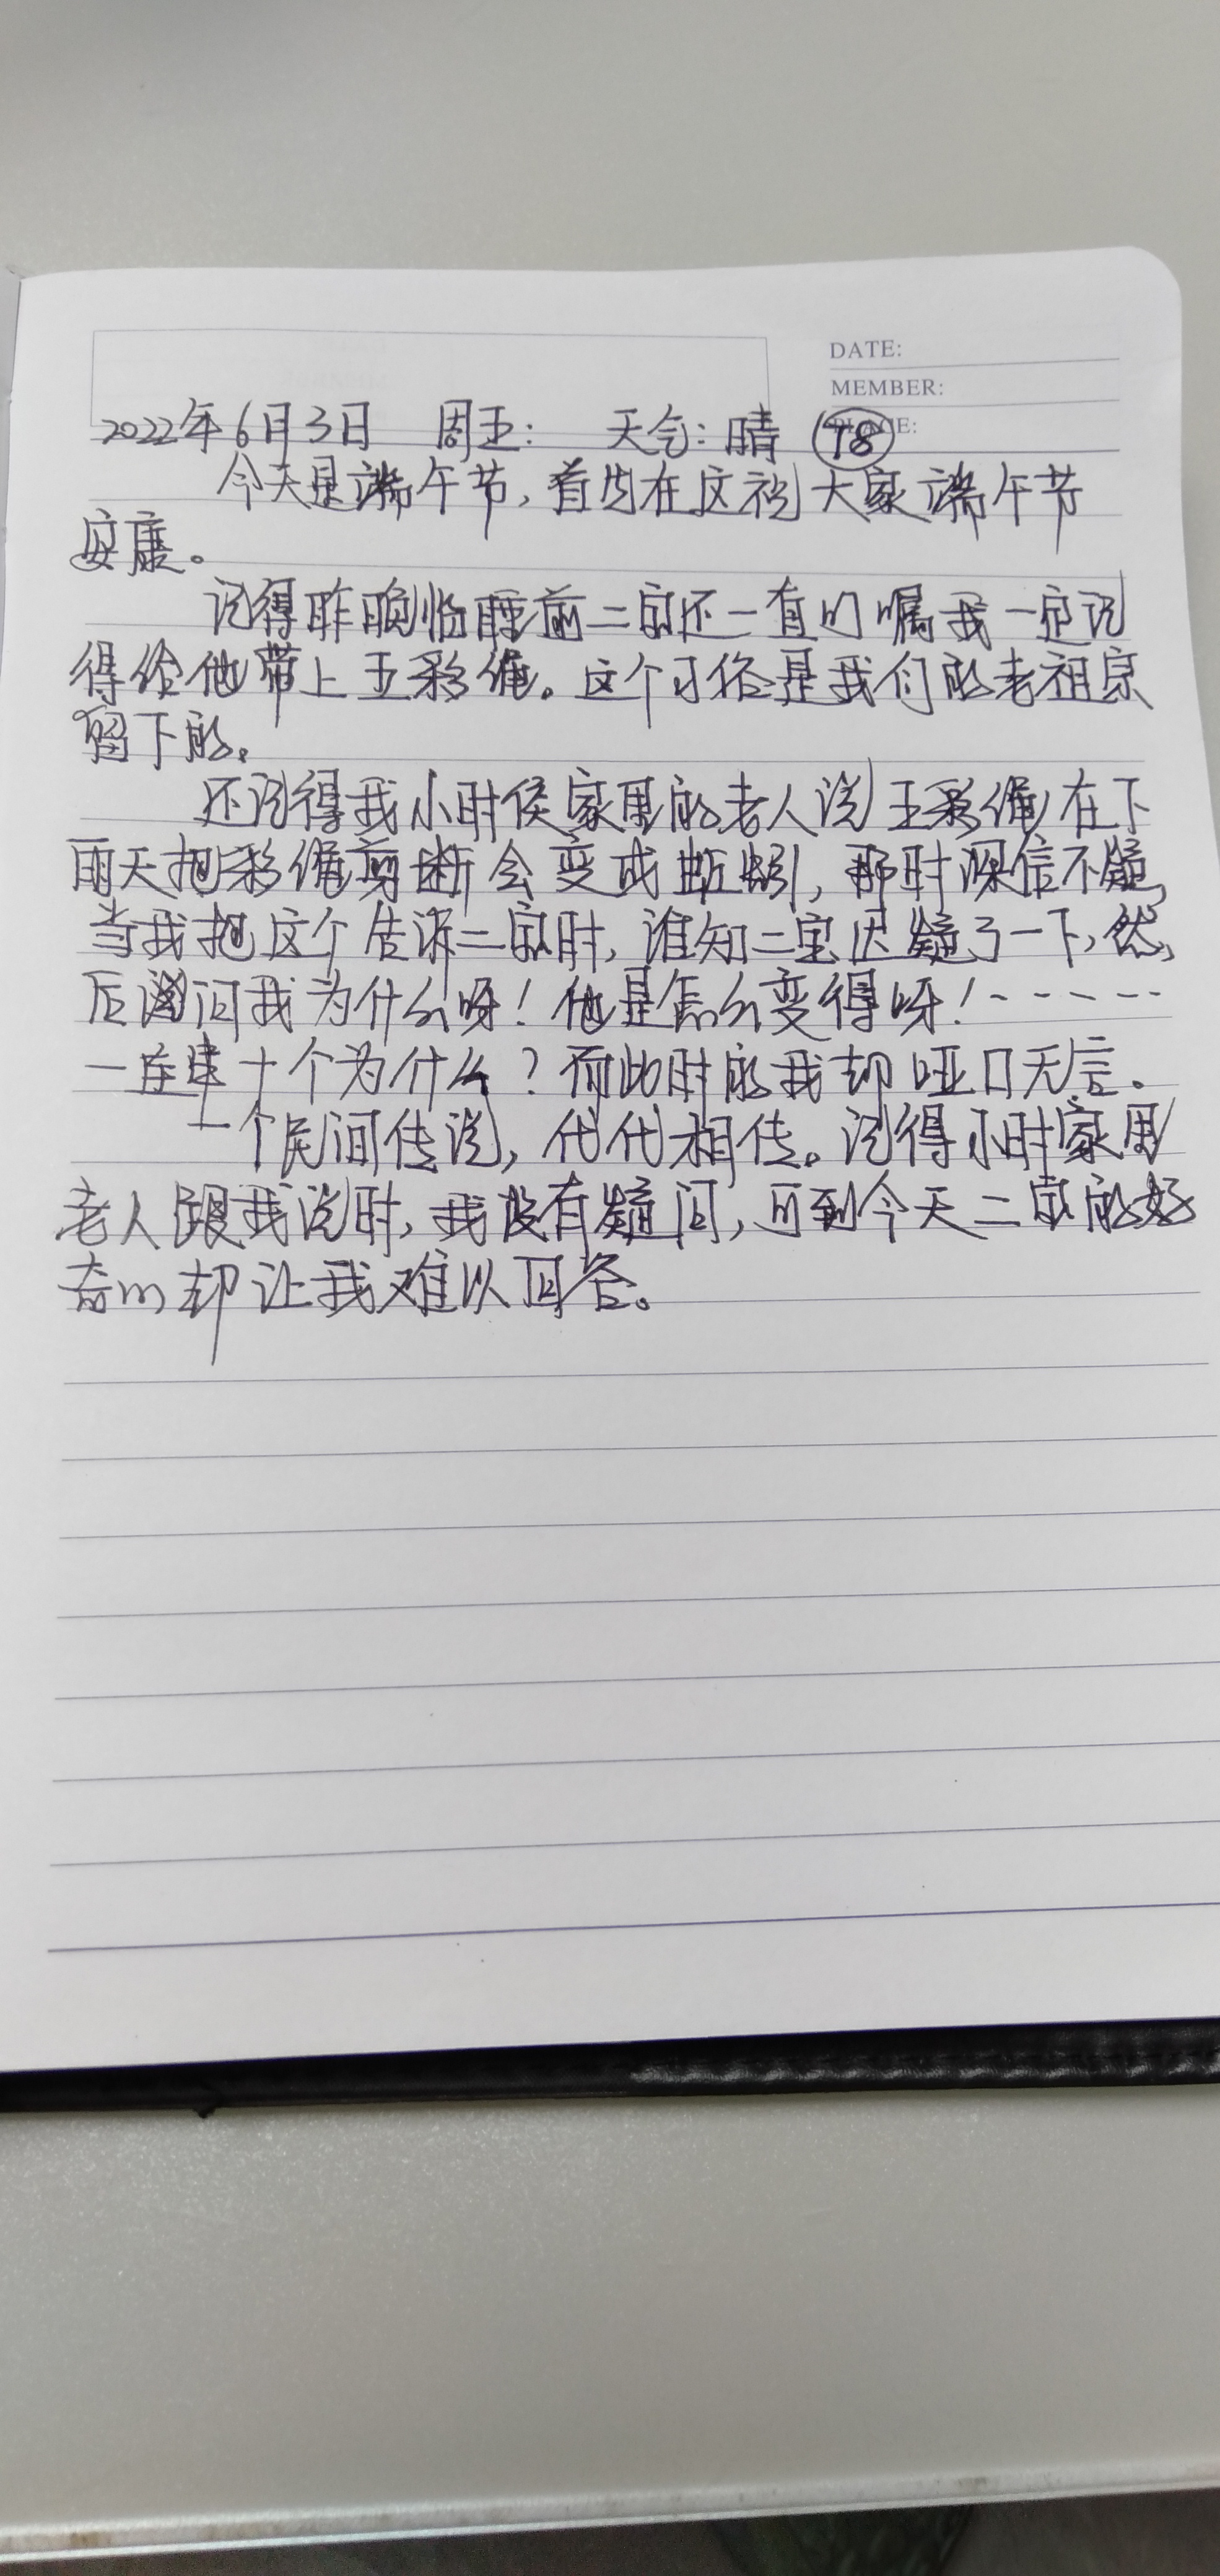 DATE:
MEMBER:
2022年6月3日 周五: 天气:晴 78
今天是端午节,首先在这祝大家端午节
安康。
记得昨晚临睡前二宝还一直叮嘱我一定记
得给他带上五彩绳。这个习俗是我们的老祖宗
留下的。
还记得我小时侯家里的老人说五彩绳在下
雨天把彩绳剪断会变成蚯蚓,那时深信不疑,
当我把这个告诉二宝时,谁知二宝迟疑了一下,然
后问我为什么呀!他是怎么变得呀!------
一连串十个为什么?而此时的我却哑口无言。
一个民间传说,代代相传。记得小时家里
老人跟我说时,我没有疑问,可到今天二宝的好
奇心却让我难以回答。